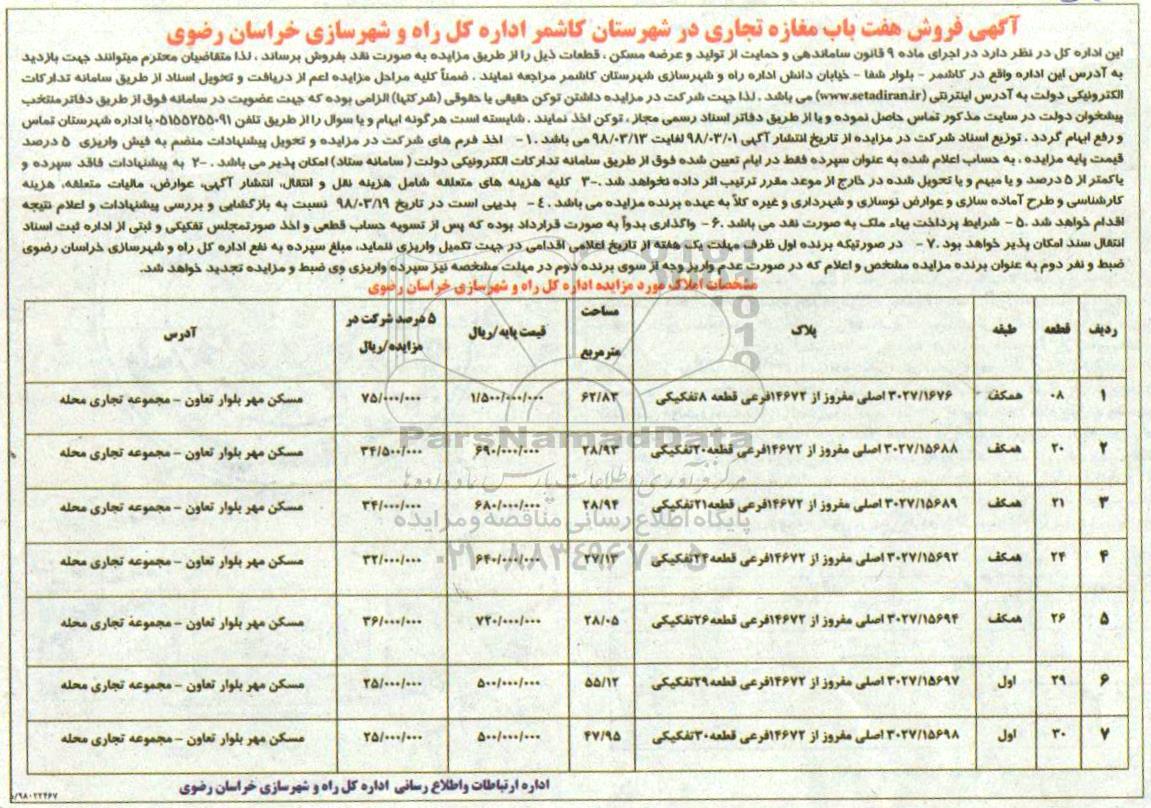 آگهی فروش هفت باب مغازه تجاری در شهرستان کاشمر اداره کل راه و شهرسازی خراسان رضوی
این اداره کل در نظر دارد در اجرای ماده ۹ قانون ساماندهی و حمایت از تولید و عرضه مسکن ، قطعات ذیل را از طریق مزایده به صورت نقد بفروش برساند ، لذا متقاضیان محترم میتوانند جهت بازدید
به آدرس این اداره واقع در کاشمر - بلوار شفا - خیابان دانش اداره راه و شهرسازی شهرستان کاشمر مراجعه نمایند . ضمناً کلیه مراحل مزایده اعم از دریافت و تحویل اسناد از طریق سامانه تدارکات
الکترونیکی دولت به آدرس اینترنتی (www.setadiran.ir) می باشد . لذا جهت شرکت در مزایده داشتن توکن حقیقی یا حقوقی (شرکتها) الزامی بوده که جهت عضویت در سامانه فوق از طریق دفاترمنتخب
پیشخوان دولت در سایت مذکور تماس حاصل نموده و یا از طریق دفاتر اسناد رسمی مجاز ، توکن اخذ نمایند . شایسته است هرگونه ابهام و یا سوال را از طریق تلفن ۰۵۱۵۵۲۵۵۰۹۱ با اداره شهرستان تماس
و رفع ابهام گردد . توزیع اسناد شرکت در مزایده از تاریخ انتشار آگهی ۹۸/۰۳/۰۱ لغایت ۹۸/۰۳/۱۳ می باشد . ۱- اخذ فرم های شرکت در مزایده و تحویل پیشنهادات منضم به فیش واریزی ۵ درصد
قیمت پایه مزایده ، به حساب اعلام شده به عنوان سپرده فقط در ایام تعیین شده فوق از طریق سامانه تدارکات الکترونیکی دولت ( سامانه ستاد) امکان پذیر می باشد . ۲- به پیشنهادات فاقد سپرده و
یاکمتر از ۵ درصد و یا مبهم و یا تحویل شده در خارج از موعد مقرر ترتیب اثر داده نخواهد شد . ۳- کلیه هزینه های متعلقه شامل هزینه نقل و انتقال، انتشار آگهی، عوارض، مالیات متعلقه، هزینه
کارشناسی و طرح آماده سازی و عوارض نوسازی و شهرداری و غیره کلاً به عهده برنده مزایده می باشد . ۴- بدیهی است در تاریخ ۹۸/۰۳/۱۹ نسبت به بازگشایی و بررسی پیشنهادات و اعلام نتیجه
اقدام خواهد شد . ۵- شرایط پرداخت بهاء ملک به صورت نقد می باشد . ۶- واگذاری بدواً به صورت قرارداد بوده که پس از تسویه حساب قطعی و اخذ صورتمجلس تفکیکی و ثبتی از اداره ثبت اسناد
انتقال سند امکان پذیر خواهد بود . ۷- در صورتیکه برنده اول ظرف مهلت یک هفته از تاریخ اعلامی اقدامی در جهت تکمیل واریزی ننماید، مبلغ سپرده به نفع اداره کل راه و شهرسازی خراسان رضوی
ضبط و نفر دوم به عنوان برنده مزایده مشخص و اعلام که در صورت عدم واریز وجه از سوی برنده دوم در مهلت مشخصه نیز سپرده واریزی وی ضبط و مزایده تجدید خواهد شد.
مشخصات املاک مورد مزایده اداره کل راه و شهرسازی خراسان رضوی
ردیف قطعه طبقه پلاک مساحت مترمربع قیمت پایه/ریال ۵ درصد شرکت در مزایده/ریال آدرس
۱ ۰۸ همکف ۳۰۲۷/۱۶۷۶ اصلی مفروز از ۱۴۶۷۲فرعی قطعه ۸تفکیکی ۶۲/۸۳ ۱/۵۰۰/۰۰۰/۰۰۰ ۷۵/۰۰۰/۰۰۰ مسکن مهر بلوار تعاون - مجموعه تجاری محله
۲ ۲۰ همکف ۳۰۲۷/۱۵۶۸۸ اصلی مفروز از ۱۴۶۷۲فرعی قطعه۲۰تفکیکی ۲۸/۹۳ ۶۹۰/۰۰۰/۰۰۰ ۳۴/۵۰۰/۰۰۰ مسکن مهر بلوار تعاون - مجموعه تجاری محله
۳ ۲۱ همکف ۳۰۲۷/۱۵۶۸۹ اصلی مفروز از ۱۴۶۷۲فرعی قطعه۲۱تفکیکی ۲۸/۹۴ ۶۸۰/۰۰۰/۰۰۰ ۳۴/۰۰۰/۰۰۰ مسکن مهر بلوار تعاون - مجموعه تجاری محله
۴ ۲۴ همکف ۳۰۲۷/۱۵۶۹۲ اصلی مفروز از ۱۴۶۷۲فرعی قطعه۲۴تفکیکی ۶۴۰/۰۰۰/۰۰۰ ۳۲/۰۰۰/۰۰۰ مسکن مهر بلوار تعاون - مجموعه تجاری محله
۵ ۲۶ همکف ۳۰۲۷/۱۵۶۹۴ اصلی مفروز از ۱۴۶۷۲فرعی قطعه۲۶تفکیکی ۲۸/۰۵ ۷۲۰/۰۰۰/۰۰۰ ۳۶/۰۰۰/۰۰۰ مسکن مهر بلوار تعاون - مجموعه تجاری محله
۶ ۲۹ اول ۳۰۲۷/۱۵۶۹۷ اصلی مفروز از ۱۴۶۷۲فرعی قطعه۲۹تفکیکی ۵۵/۱۲ ۵۰۰/۰۰۰/۰۰۰ ۲۵/۰۰۰/۰۰۰ مسکن مهر بلوار تعاون - مجموعه تجاری محله
۷ ۳۰ اول ۳۰۲۷/۱۵۶۹۸ اصلی مفروز از ۱۴۶۷۲فرعی قطعه۳۰تفکیکی ۴۷/۹۵ ۵۰۰/۰۰۰/۰۰۰ ۲۵/۰۰۰/۰۰۰ مسکن مهر بلوار تعاون - مجموعه تجاری محله
ParsNamadData
مرکز فرآوری اطلاعات پارس نماد داده ها
پایگاه اطلاع رسانی مناقصه و مزایده
۰۲۱-۸۸۳۴۹۶۷۰-۵
اداره ارتباطات واطلاع رسانی اداره کل راه و شهرسازی خراسان رضوی
۹۸۰۲۲۴۶۷/